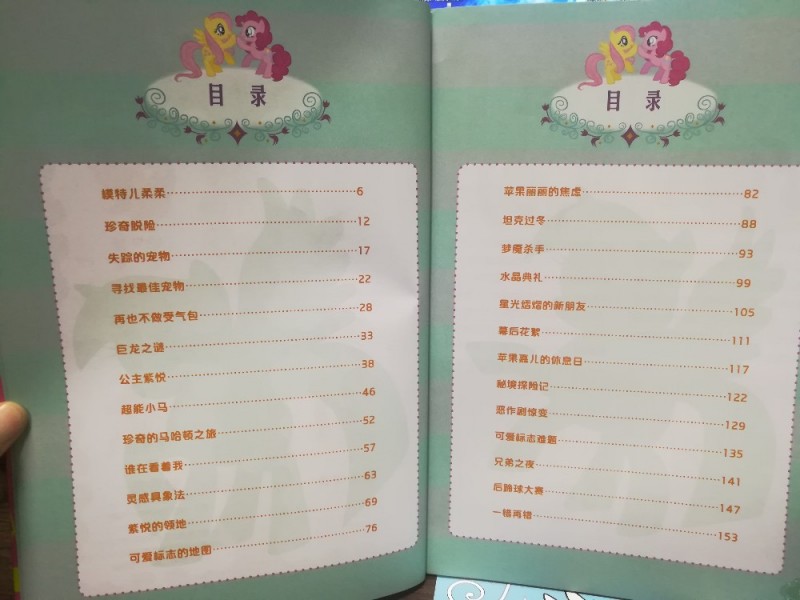 目录
模特儿柔柔……6
珍奇脱险……12
失踪的宠物……17
寻找最佳宠物……22
再也不做受气包……28
巨龙之谜……33
公主紫悦……38
超能小马……46
珍奇的马哈顿之旅……52
谁在看着我……57
灵感具象法……63
紫悦的领地……69
可爱标志的地图……76
目录
苹果丽丽的焦虑……82
坦克过冬……88
梦魇杀手……93
水晶典礼……99
星光熠熠的新朋友……105
幕后花絮……111
苹果嘉儿的休息日……117
秘境探险记……122
恶作剧惊变……129
可爱标志难题……135
兄弟之夜……141
后蹄球大赛……147
一错再错……153